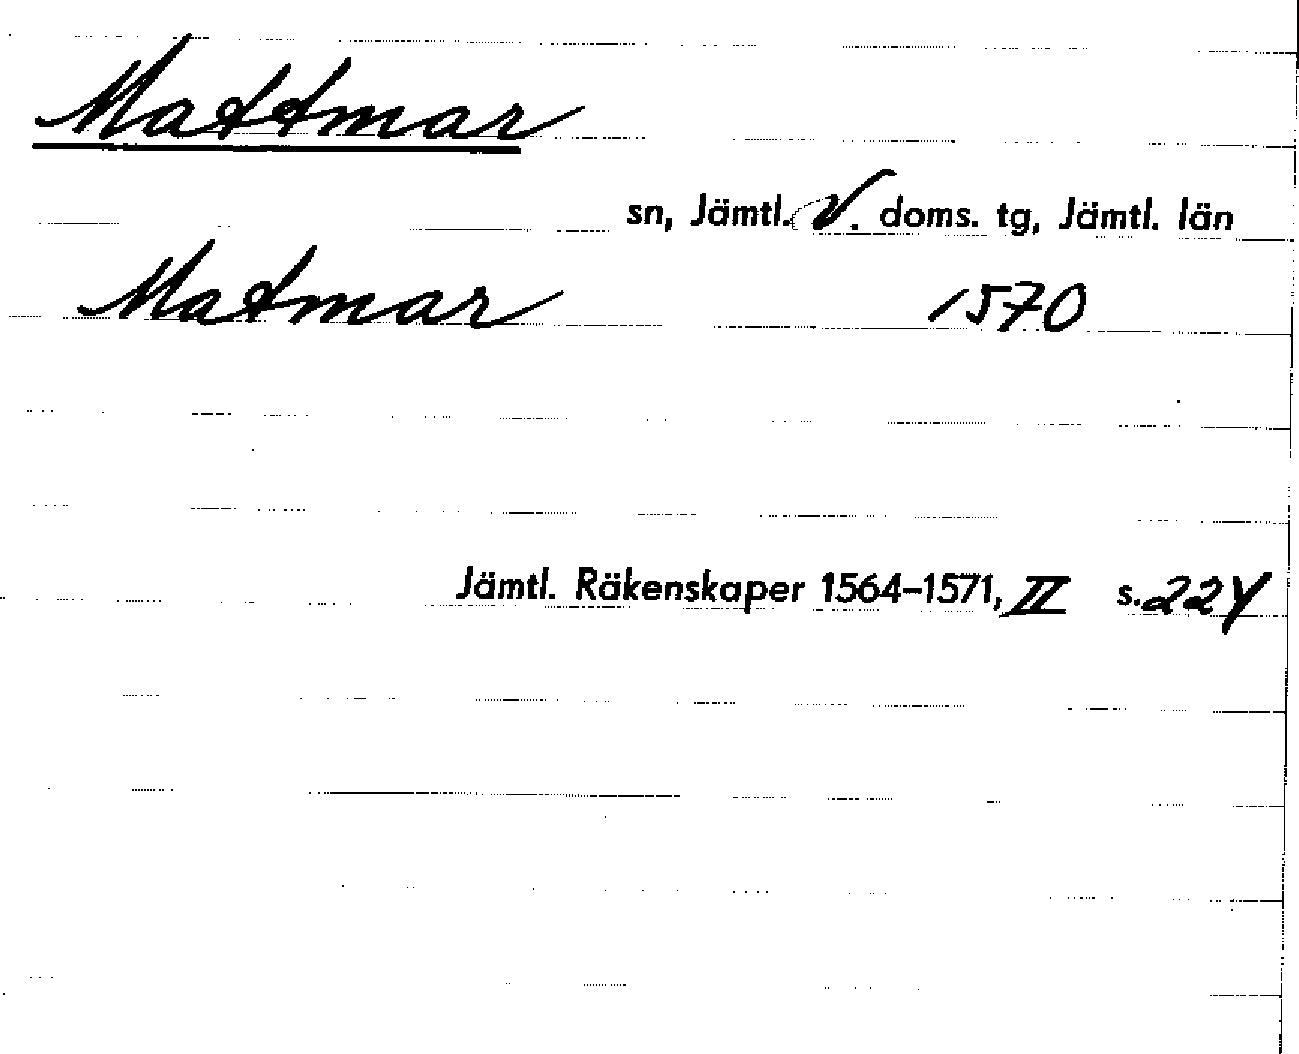 Mattmar
sn, Jämtl. V. doms. tg, Jämtl. län
Matmar 1570
Jämtl. Räkenskaper 1564–1571, II s. 224